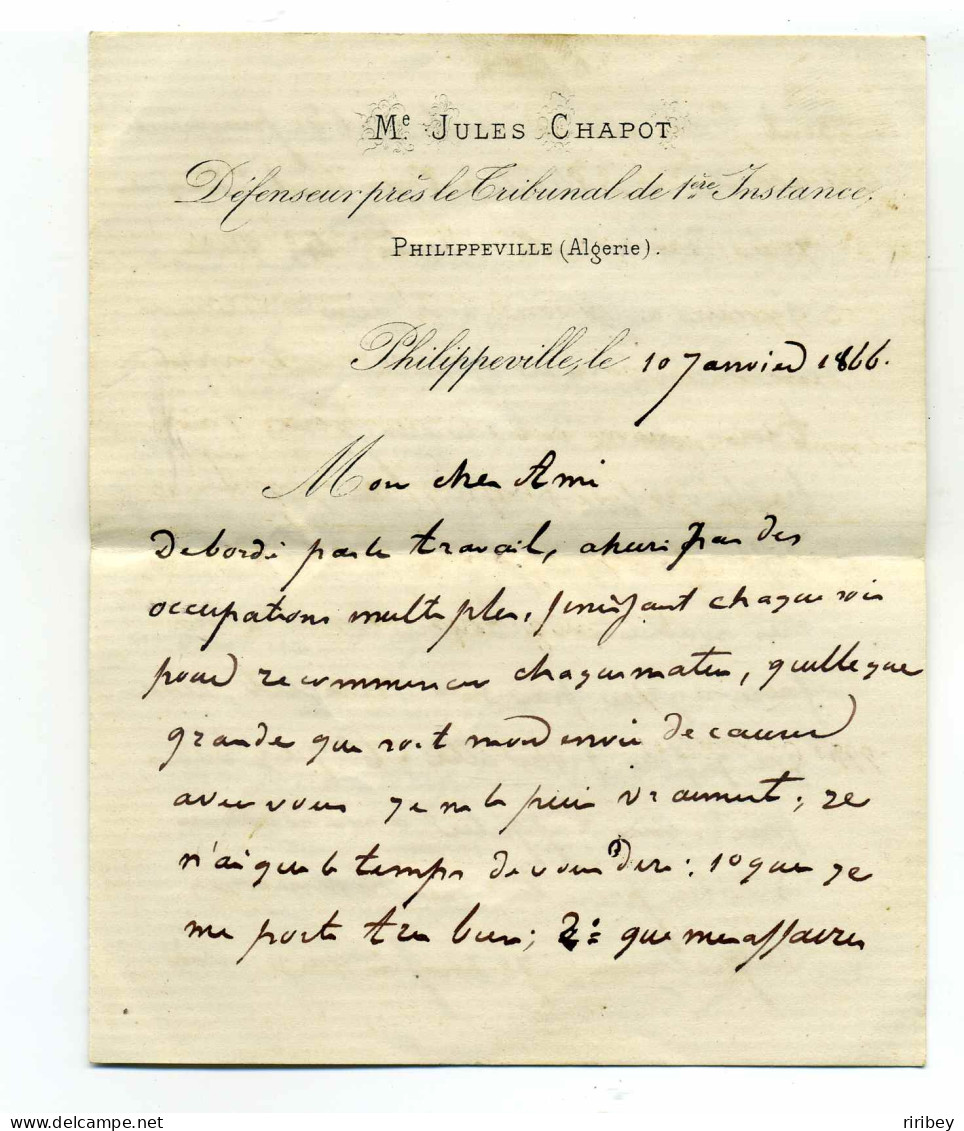 Me. JULES CHAPOT
Défenseur près le Tribunal de 1ère Instance.
PHILIPPEVILLE (Algerie).
Philippeville, le 10 Janvier 1866.
Mon cher Ami
Debordé par le travail, ahuri par des
occupations multiples, finissant chaque soir
pour recommencer chaque matin, quelle que
grande que soit mon envie de causer
avec vous je ne le puis vraiment; je
n'ai que le temps de vous dire: 1o que je
me porte tres bien; 2o que mes affaires
riribey